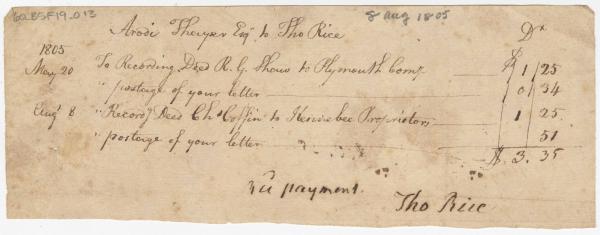 62.BSF19.013
8 Aug 1805
Arodi Thayer Esqr to Tho Rice Dr
1805 $
May 20 To Recording Deed R. G. Shaw to Plymouth Compy 1/25
" postage of your letter 0/34
Augt 8 " Recordg Deed Chs Coffin to Kennebec Proprietors 1 25
" postage of your letter 51
$. 3. 35
Recd payment.
Tho Rice